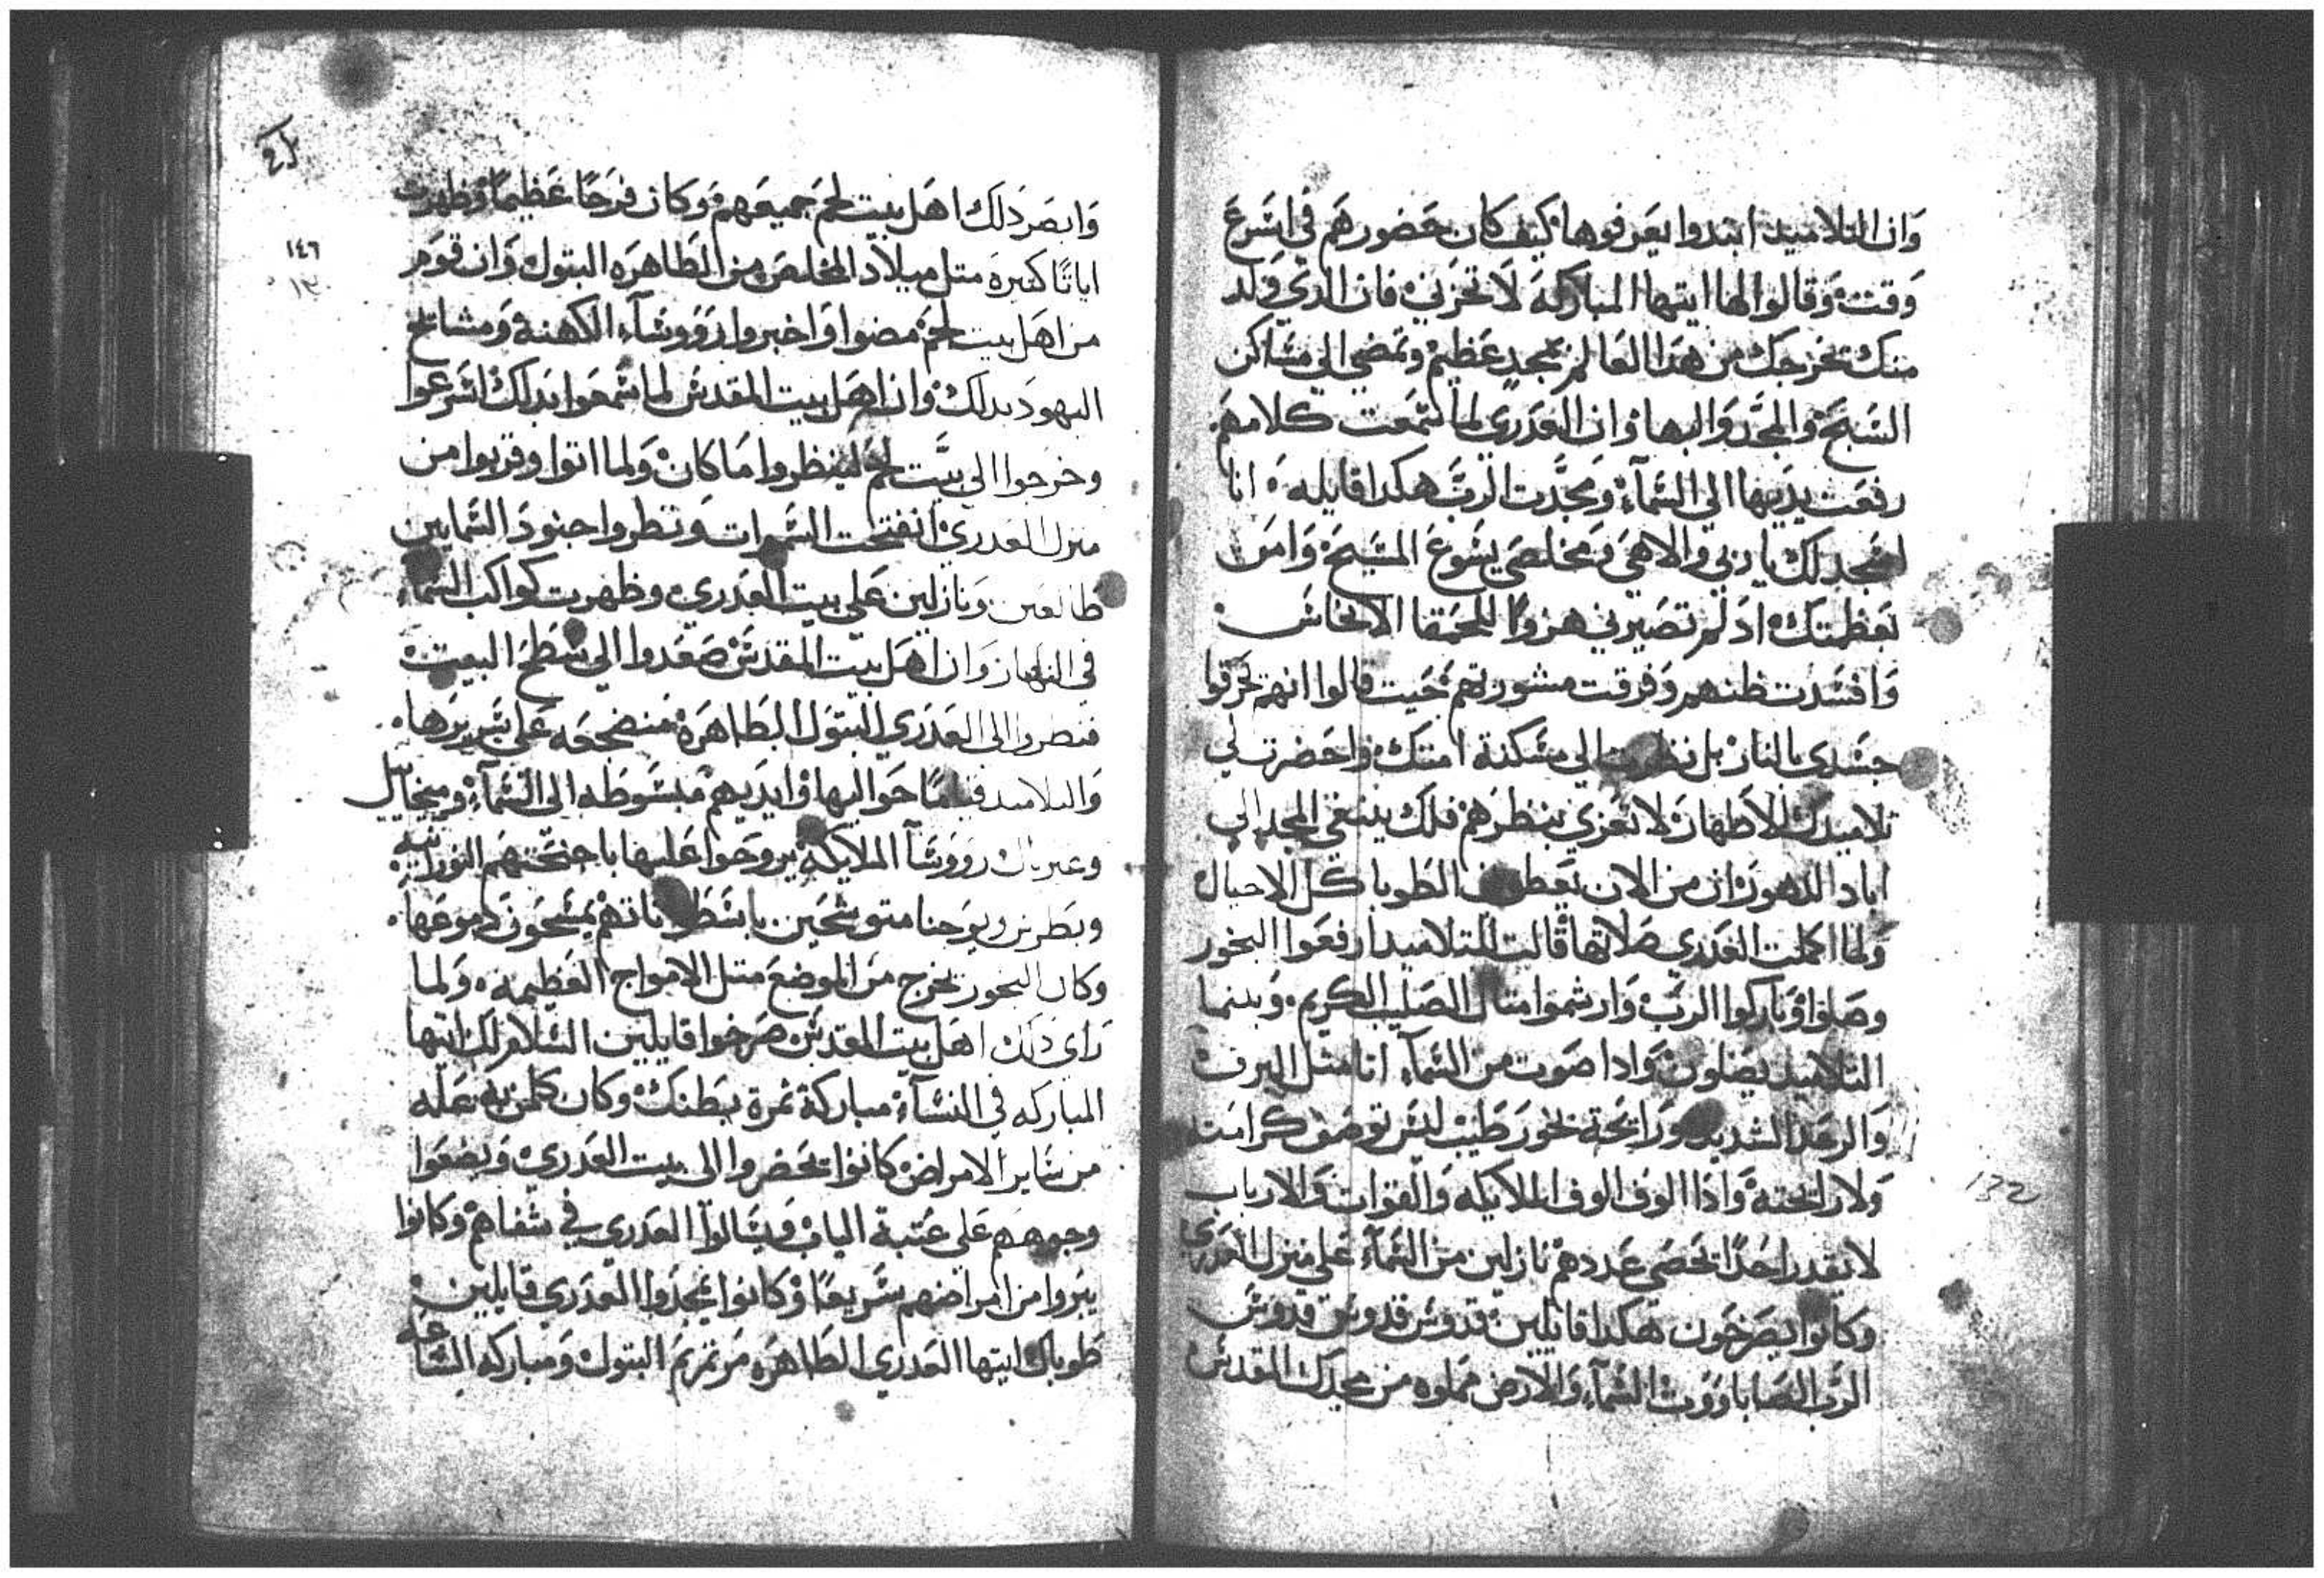 وان التلاميذ ابتدوا يعرفوها كيف كان حضورهم في اسرع
وقت وقالوا لها ايتها المباركه لا تحزني فان الدي ولد
منك يخرجك من هدا العالم بمجد عظيم وتمضي الي مساكن
السبح والمجد والبها وان العدري لما سمعت كلامهم
رفعت يديها الي السماء ومجدت الرب هكدا قايله انا
اسجد لك يا ربي والاهي ومخلصي يسوع المسيح وامن
بعظمتك اد لم تصيرني هزوا للحمقا الانجاس
وافسدت ظنهم وفرقت مشورتهم حيت قالوا انهم يحرقوا
جسدي بالنار بل نظرت الي مسكنة امتك واحضرت لي
تلاميدك الاطهار لاتعزي بنظرهم فلك ينبغي المجد الي
اباد الدهور وان من الان يعطوني الطوبا كل الاجيال
ولما اكملت العدري صلاتها قالت للتلاميد ارفعوا البخور
وصلوا وباركوا الرب وارشموا متال الصليب الكريم وبينما
التلاميد يصلون وادا صوت من السماء اتا مثل البرق
والرعد الشديد ورايحة بخور طيب ليس توصف كرامته
ولا رايحته وادا الوف الوف الملايكه والقوات والارباب
لا يقدر احدا يحصي عددهم نازلين من السماء علي منزل العدري
وكانوا يصرخون هكدا قايلين قدوس قدوس قدوس
الرب الصاباووت السماء والارض مملوه من مجدك المقدس
١٣٢
وابصر دلك اهل بيت لحم جميعهم وكان فرحا عظيما وظهرت
اياتا كتيرة متل ميلاد المخلص من الطاهره البتول وان قوم
من اهل بيت لحم مضوا واخبروا رووساء الكهنة ومشايخ
اليهود بدلك وان اهل بيت المقدس لما سمعوا بدلك اسرعوا
وخرجوا الي بيت لحم لينظروا ما كان ولما اتوا وقربوا من
منزل العدري انفتحت السموات ونظروا جنود السمايين
طالعين ونازلين علي بيت العدري وظهرت كواكب السماء
في النهار وان اهل بيت المقدس صعدوا الي سطح البيت
فنظروا الي العدري البتول الطاهرة منضجعه علي سريرها
والتلاميد قياما حواليها وايديهم مبسوطه الي السماء وميخاييل
وغبريال رووسا الملايكه يروحوا عليها باجنحتهم النورانيه
وبطرس ويوحنا متوشحين باسطوناتهم يمسحون دموعها
وكان البخور يخرج من الموضع متل الامواج العظيمه ولما
راي دلك اهل بيت المقدس صرخوا قايلين السلام لك ايتها
المباركه في النساء مباركة ثمرة بطنك وكان كلمن به عله
من ساير الامراض كانوا يحضروا الي بيت العدري ويضعوا
وجوههم علي عتبة الباب ويسالوا العدري في شفاهم وكانوا
يبروا من امراضهم سريعا وكانوا يمجدوا العدري قايلين
طوباك ايتها العدري الطاهره مرتمريم البتول ومباركه الساعه
١٤٦
١٣